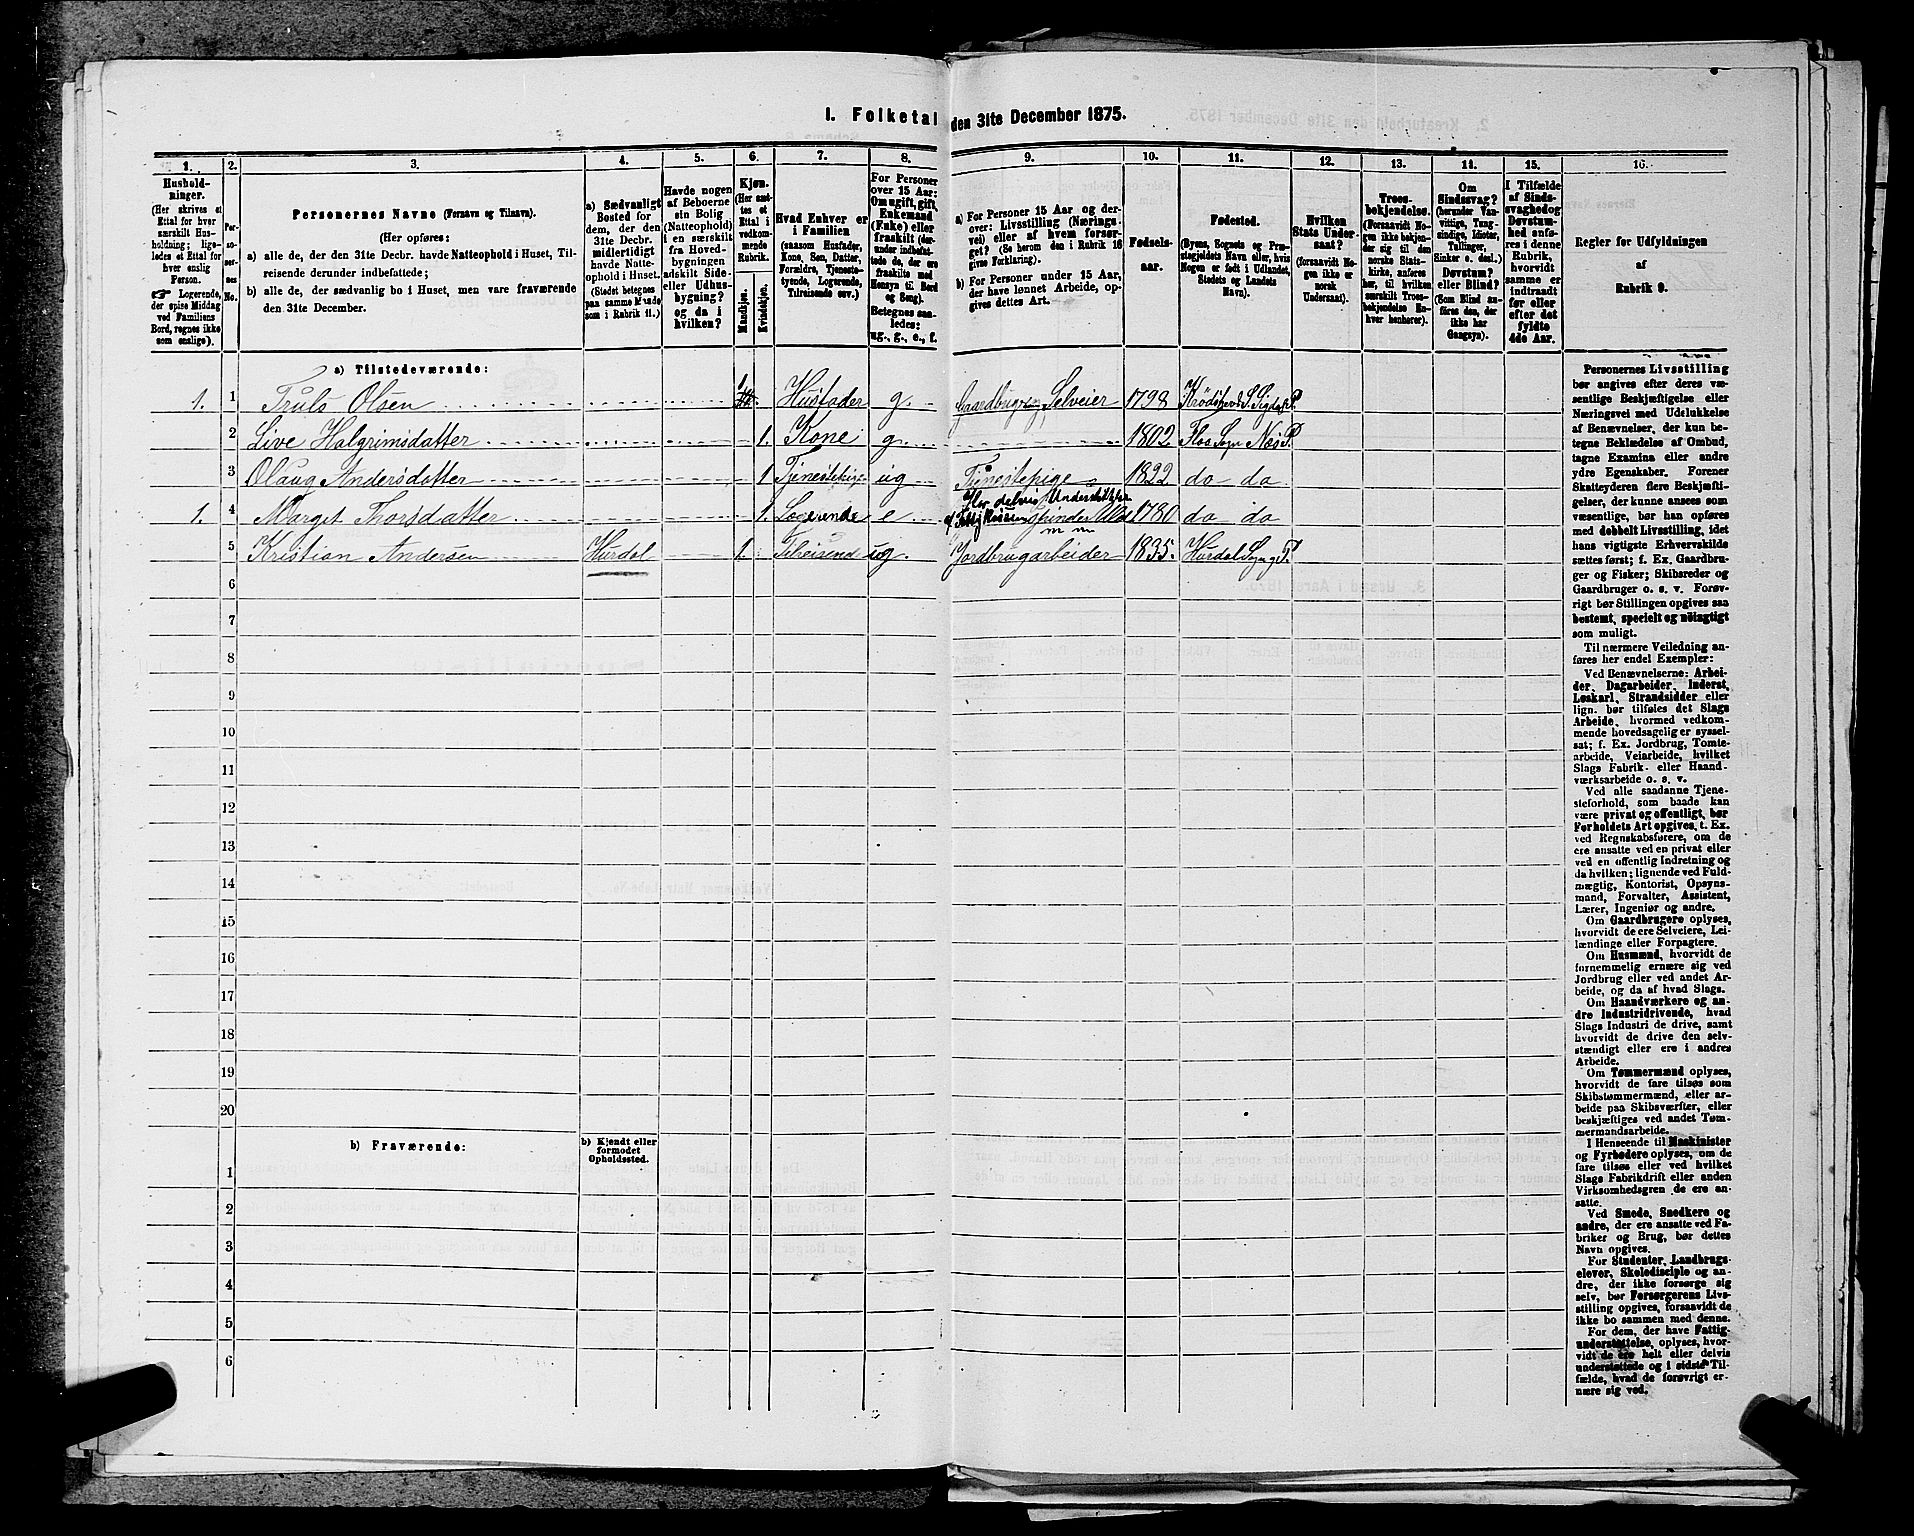 I. Folketal den 31te December 1875.
1. 2. 3. 4. 5. 6. 7. 8. 9. 10. 11. 12. 13. 14. 15. 16.
Hushold-
ninger.
(Her skrives et
Ettal for hver
særskilt Hus-
holdning; lige-
ledes et Ettal for
hver enslig
Person.
☞ Logerende,
der spise Middag
ved Familiens
Bord, regnes ikke
som enslige).
Per-
so-
ner-
nes
No.
Personernes Navne (Fornavn og Tilnavn).
(Her opføres:
a) alle de, der den 31te Decbr. havde Natteophold i Huset, Til-
reisende derunder indbefattede;
b) alle de, der sædvanlig bo i Huset, men vare fraværende
den 31te December.
a) Sædvanligt
Bosted for
dem, der den
31te Decbr.
midlertidigt
havde Natte-
ophold i Huset.
(Stedet betegnes
paa samme Maade
som i Rubrik 11.)
Havde nogen
af Beboerne
sin Bolig
(Natteophold)
i en særskilt
fra Hoved-
bygningen
adskilt Side-
eller Udhus-
bygning?
og da i
hvilken?
Kjøn.
(Her sæt-
tes et
Ettal i
vedkom-
mende
Rubrik.
Mandkjøn.
Kvindekjøn.
Hvad Enhver er
i Familien
(saasom Husfader,
Kone, Søn, Datter,
Forældre, Tjeneste-
tyende, Logerende,
Tilreisende osv.)
For Personer
over 15 Aar:
Om ugift, gift,
Enkemand
(Enke) eller
fraskilt (der-
under indbefat-
tede de, der ere
fraskilte med
Hensyn til Bord
og Seng).
Betegnes saa-
ledes:
ug., g., e., f.
a) For Personer 15 Aar og der-
over: Livsstilling (Nærings-
vei) eller af hvem forsør-
get? (Se herom den i Rubrik 16
givne Forklaring).
b) For Personer under 15 Aar,
der have lønnet Arbeide, op-
gives dettes Art.
Fødsels-
aar.
Fødested.
(Byens, Sognets og Præ-
stegjeldets Navn eller, hvis
Nogen er født i Udlandet,
Stedets og Landets
Navn).
Hvilken
Stats Under-
saat?
(forsaavidt No-
gen ikke er
norsk
Undersaat).
Troes-
bekjendelse.
(Forsaavidt No-
gen ikke bekjen-
der sig til den
norske Stats-
kirke, anføres
her, til hvilken
særskilt Troes-
bekjendelse En-
hver henhører).
Om
Sindssvag?
(herunder Van-
vittige, Tung-
sindige, Idioter,
Tullinger,
Sinker o. desl.)
Døvstum?
eller Blind?
(Som Blind an-
føres den, der
ikke har
Gangsyn).
I Tilfælde
af Sinds-
svaghed og
Døvstum-
hed anfø-
res i denne
Rubrik,
hvorvidt
samme er
indtraadt
før eller
efter det
fyldte
4de Aar.
Regler for Udfyldningen
af
Rubrik 9.
a) Tilstedeværende:
1. 1 Truls Olsen 1 Husfader g. Gaardbruger, Selveier 1798 Krødsherd S. Sigdal P.
2 Live Halgrimsdatter 1. Kone g. 1802 Flaa Sogn Næs P.
3 Olaug Andersdatter 1 Tjenestepige ug Tjenestepige 1822 do do
1. 4 Marget Thorsdatter 1. Logerende e 1780 do do
5 Kristian Andersen Hurdal 1. Tilreisend ug. Jordbrugarbeider 1835. Hurdal Sogn g P.
6
7
8
9
10
11
12
13
14
15
16
17
18
19
20
b) Fraværende:
b) Kjendt eller
formodet
Opholdssted.
1
2
3
4
5
6
Personernes Livsstilling
bør angives efter deres væ-
sentlige Beskjæftigelse eller
Næringsvei med Udelukkelse
af Benævnelser, der kun be-
tegne Beklædelse af Ombud,
tagne Examina eller andre
ydre Egenskaber. Forener
Skatteyderen flere Beskjæfti-
gelser, der kunne ansees som
væsentlige, bør han opføres
med dobbelt Livsstilling, idet
hans vigtigste Erhvervskilde
sættes først; f. Ex. Gaardbru-
ger og Fisker; Skibsreder og
Gaardbruger o. s. v. Forøv-
rigt bør Stillingen opgives saa
bestemt, specielt og nöiagtigt
som muligt.
Til nærmere Veiledning an-
føres her endel Exempler:
Ved Benævnelserne: Arbei-
der, Dagarbeider, Inderst,
Løskarl, Strandsidder eller
lign. bør tilføies det Slags
Arbeide, hvormed vedkom-
mende hovedsagelig er syssel-
sat; f. Ex. Jordbrug, Tomte-
arbeide, Veiarbeide, hvilket
Slags Fabrik- eller Haand-
værksarbeide o. s. v.
Ved alle saadanne Tjene-
steforhold, som baade kan
være privat og offentligt, bør
Forholdets Art opgives, t. Ex.
ved Regnskabsførere, om de
ere ansatte ved en privat eller
ved en offentlig Indretning og
da hvilken; lignende ved Fuld-
mægtig, Kontorist, Opsyns-
mand, Forvalter, Assistent,
Lærer, Ingeniør og andre.
Om Gaardbrugere oplyses,
hvorvidt de ere Selveiere, Lei-
lændinge eller Forpagtere.
Om Husmænd, hvorvidt de
fornemmelig ernære sig ved
Jordbrug eller ved andet Ar-
beide, og da af hvad Slags.
Om Haandværkere og an-
dre Industridrivende, hvad
Slags Industri de drive, samt
hvorvidt de drive den selv-
stændigt eller ere i andres
Arbeide.
Om Tømmermænd oplyses,
hvorvidt de fare tilsøs som
Skibstømmermænd, eller ar-
beide paa Skibsværfter, eller
beskjæftiges ved andet Tøm-
mermandsarbeide.
I Henseende til Maskinister
og Fyrbødere oplyses, om de
fare tilsøs eller ved hvilket
Slags Fabrikdrift eller anden
Virksomhedsgren de ere an-
satte.
Ved Smede, Snedkere og
andre, der ere ansatte ved Fa-
briker og Brug, bør dettes
Navn opgives.
For Studenter, Landbrugs-
elever, Skoledisciple og an-
dre, der ikke forsørge sig
selv, bør Forsørgerens Livs-
stilling opgives, forsaavidt de
ikke bo sammen med denne.
For dem, der have Fattig-
understøttelse, oplyses, hvor-
vidt de ere helt eller delvis
understøttede og i sidste Til-
fælde, hvad de forøvrigt er-
nære sig ved.